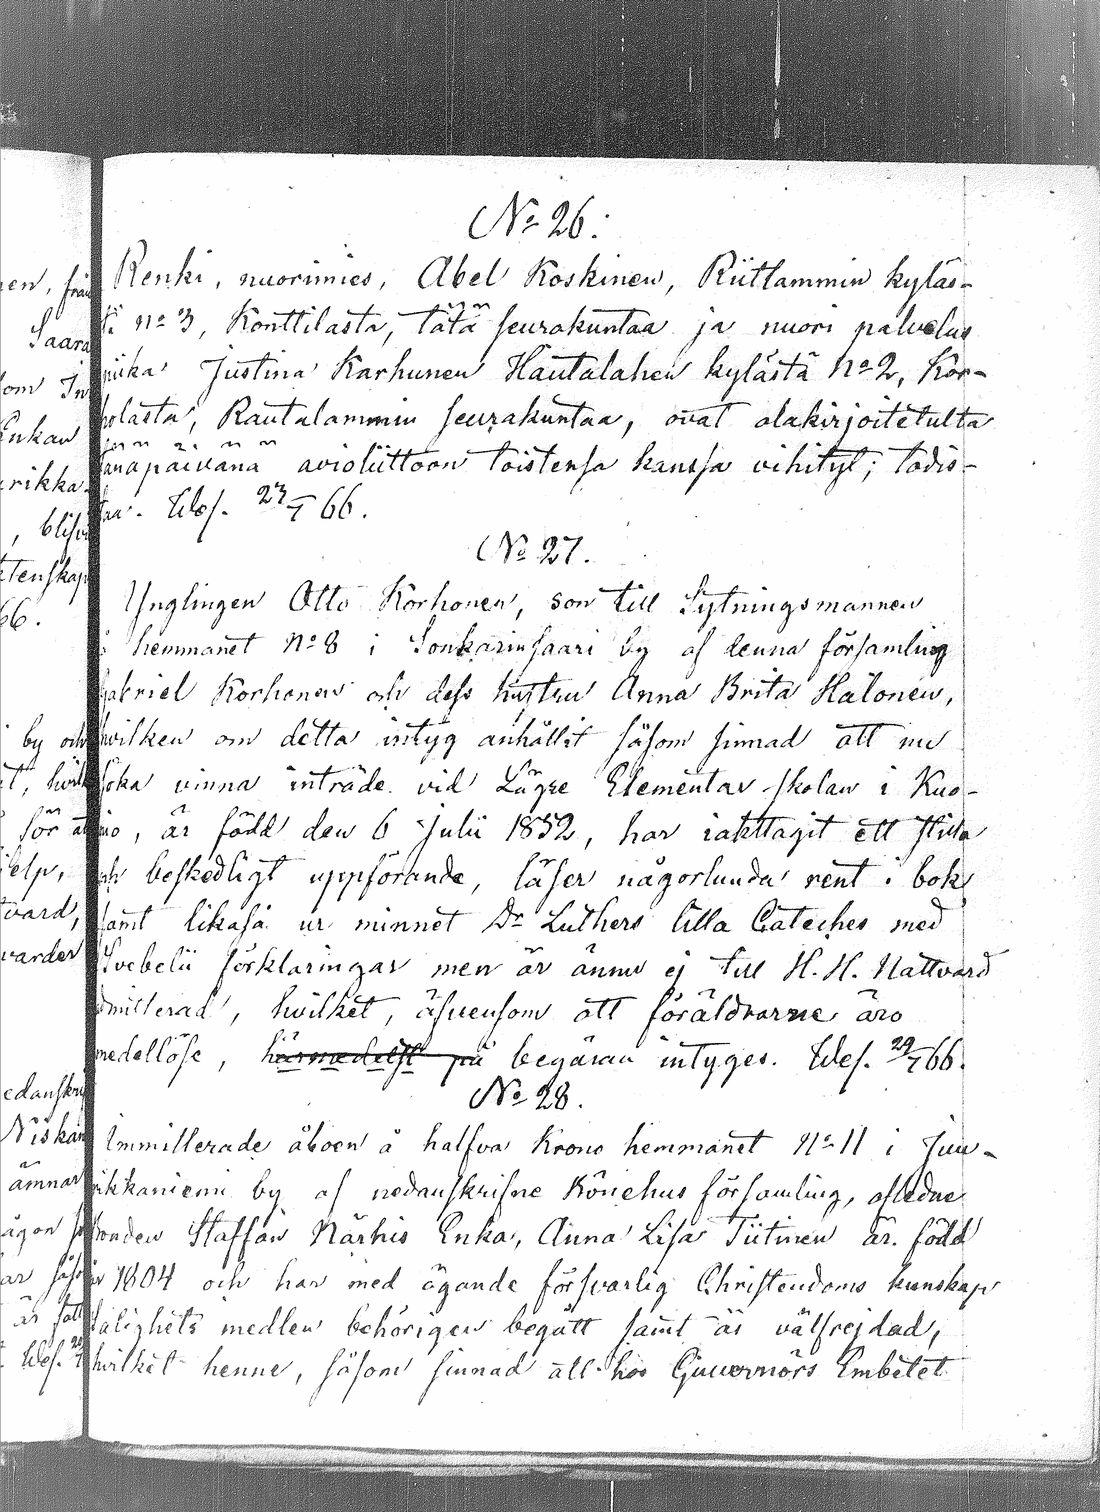 No 26.
Renki, nuorimies, Abel Koskinen, Riitlammin kyläs-
tä no 3, Konttilasta, tätä seurakuntaa ja nuori palvelus
piika Justina Karhunen Hautalahen kylästä No 2, Kor-
holasta, Rautalammin seurakuntaa, ovat alakirjoitetulta
tänäpäivänä avioliittoon toistensa kanssa vihityt; todis-
taa. Wes. 23/7 66.
No 27.
Ynglingen Otto Korhonen, son till Sytningsmannen
i hemmanet No 8 i Sonkarinsaari by af denna församling
Gabriel Korhonen och dess hustru Anna Brita Halonen,
hvilken om detta intyg anhållit såsom sinnad att nu
söka vinna inträde vid Lägre Elementar skolan i Kuo-
pio, är född den 6 Julii 1852, har iakttagit ett stilla
och beskedligt uppförande, läser någorlunda rent i bok
samt likaså ur minnet Dr Luthers lilla Cateches med
Svebelii förklaringar men är ännu ej till H. H. Nattvard
admitterad, hvilket, äfvensom att föräldrarne äro
medellöse, härmedelst på begäran intyges. Wes. 29/7 66.
No 28.
Immitterade åboen å halfva Krono hemmanet No 11 i Juu-
rikkaniemi by af nedanskrifne Könehus församling, afledne
bonden Staffan Närhis Enka, Anna Lisa Tiitinen är född
år 1804 och har med ägande försvarlig Christendoms kunskap
salighets medlen behörigen begått samt är välfrejdad,
hvilket henne, såsom sinnad att hos Guvernörs Embetet
en, från
Saara
som In
Enkan
rikka
, blifvi
ktenskap
66.
i by och
it, hvilk
för at
jelp,
tvard,
varder
edanskri
Niskan
ämnar
ågon
ar såso
är fatt
Wes.